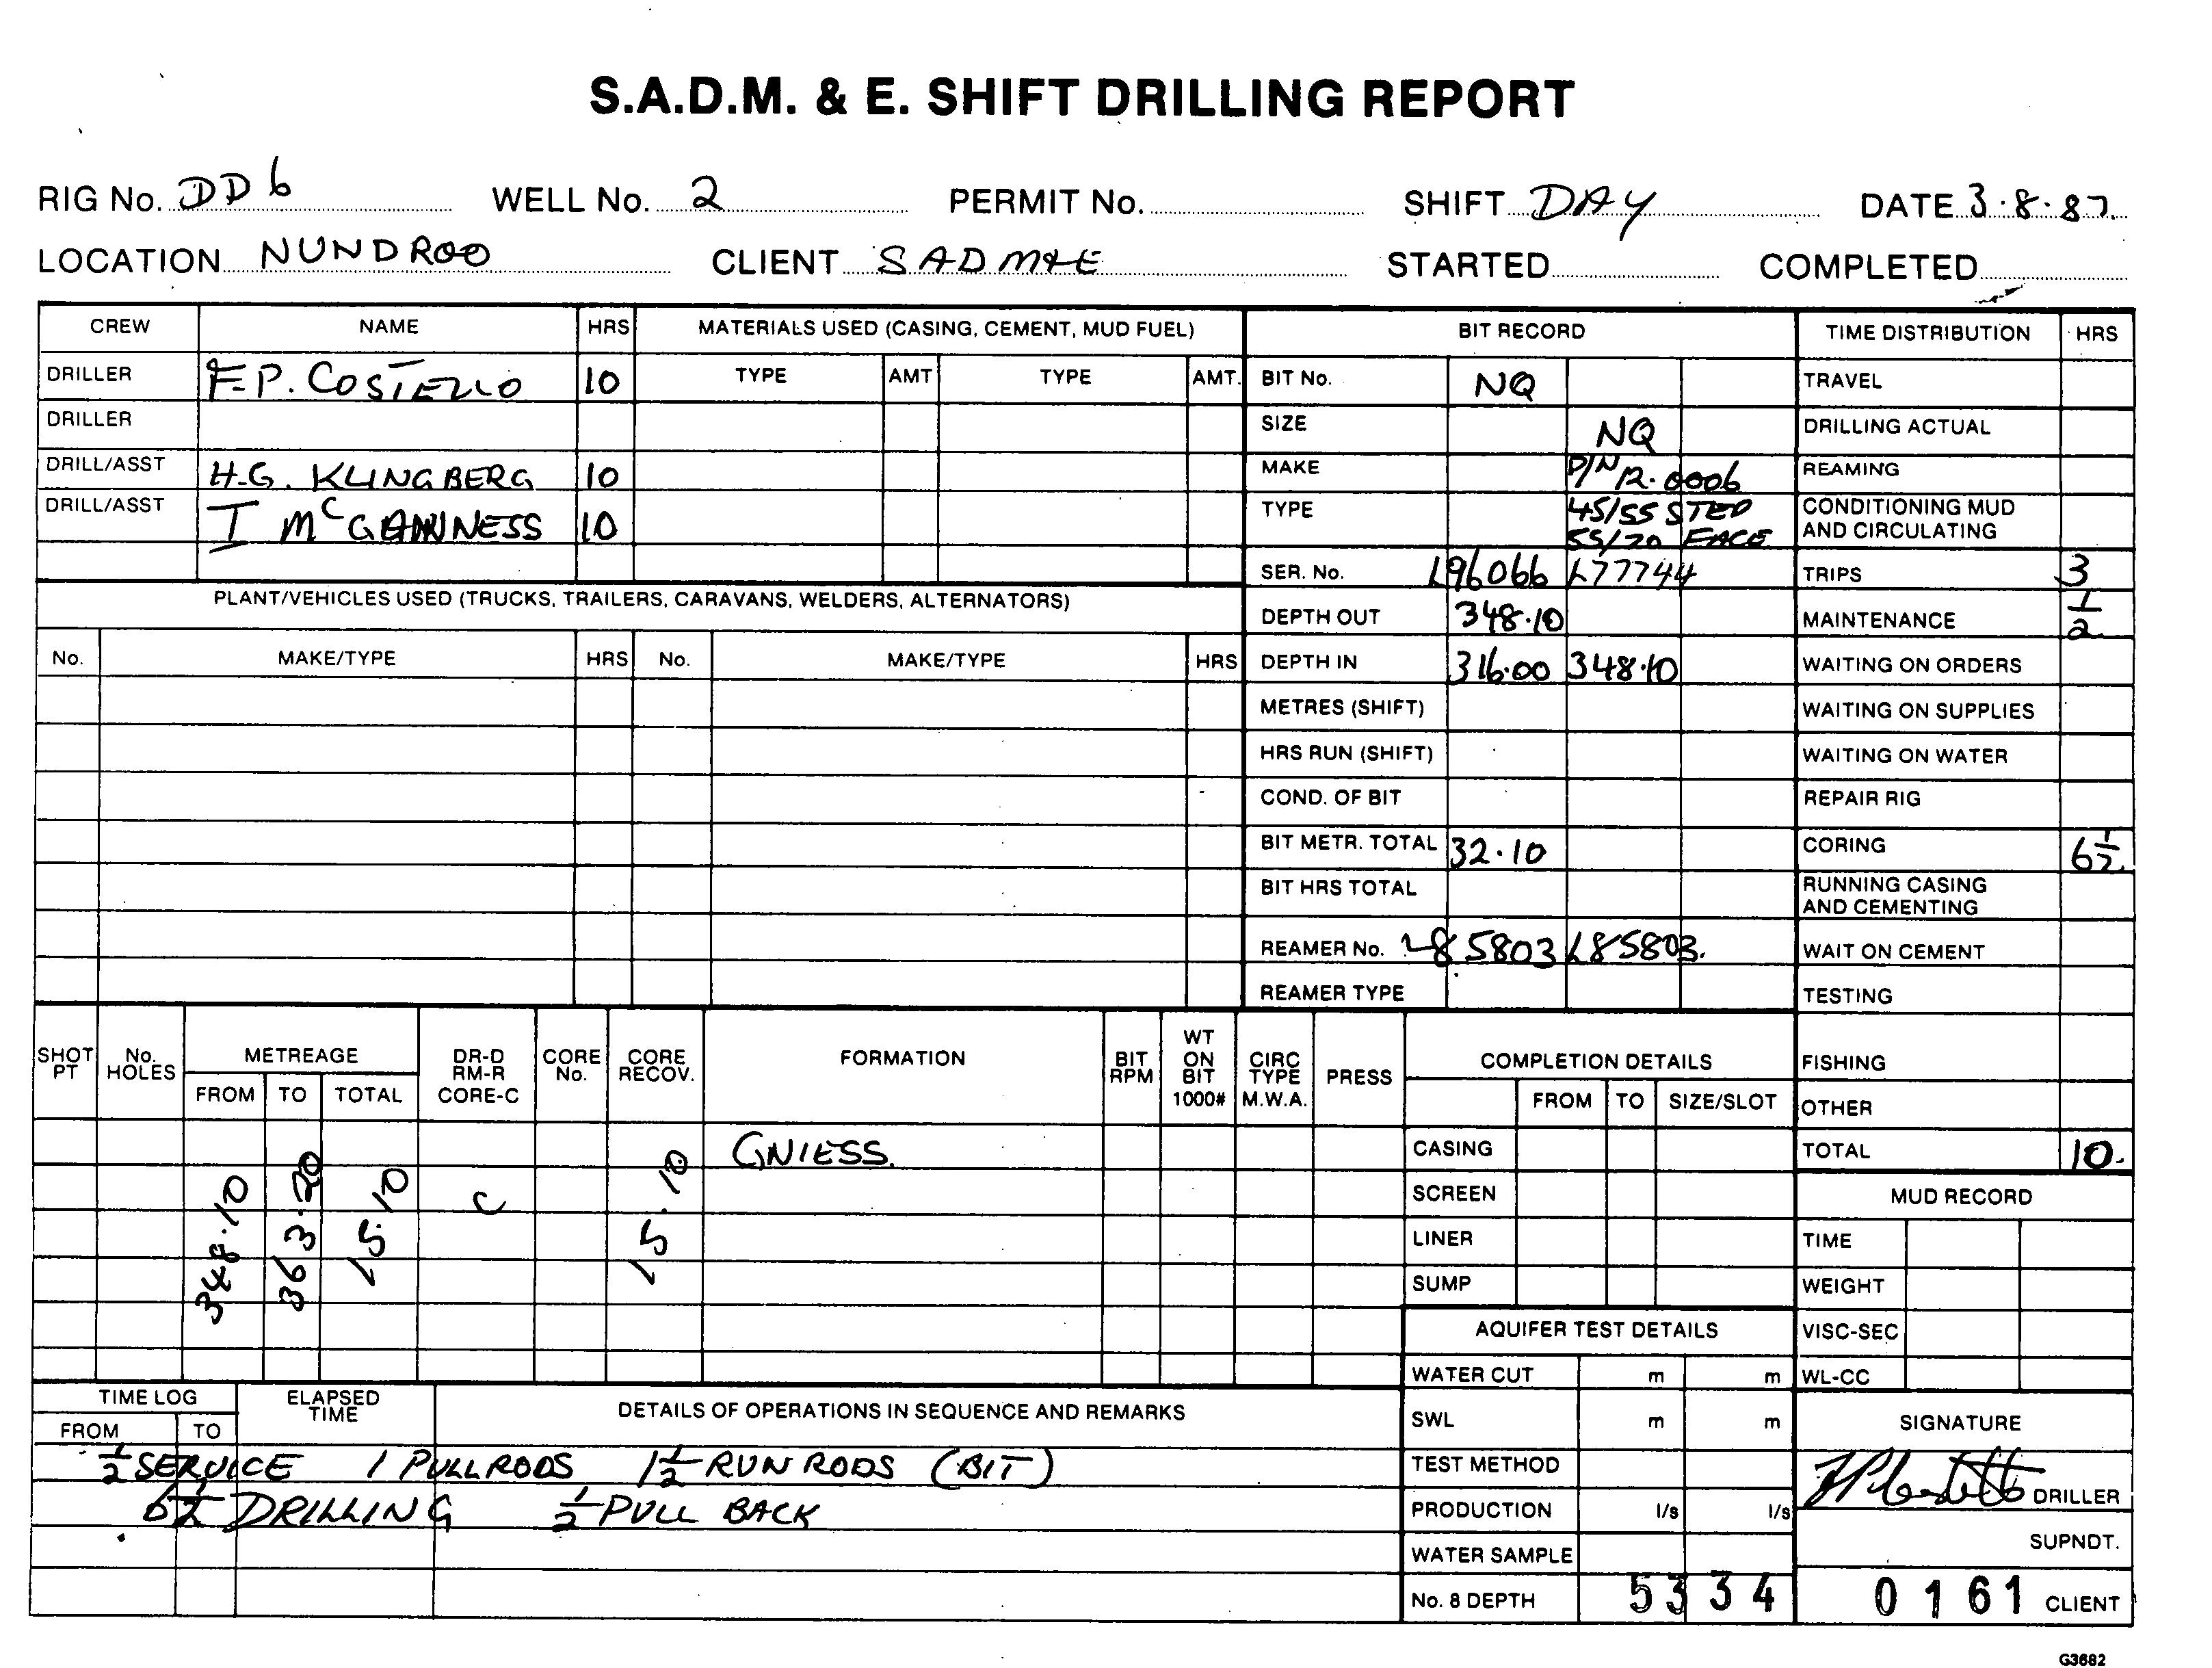 S.A.D.M. & E. SHIFT DRILLING REPORT
RIG No. DD6 WELL No. 2 PERMIT No. SHIFT DAY DATE 3.8.87.
LOCATION NUNDROO CLIENT SADM&E STARTED COMPLETED
CREW NAME HRS MATERIALS USED (CASING, CEMENT, MUD FUEL) BIT RECORD TIME DISTRIBUTION HRS
DRILLER F.P. COSTELLO 10 TYPE AMT TYPE AMT. BIT No. NQ TRAVEL
DRILLER SIZE NQ DRILLING ACTUAL
DRILL/ASST H.G. KLINGBERG 10 MAKE P/N 12.0006 REAMING
DRILL/ASST I McGANNESS 10 TYPE 45/55 STEP CONDITIONING MUD
55/70 FACE AND CIRCULATING
SER. No. L96066 L77744 TRIPS 3
PLANT/VEHICLES USED (TRUCKS, TRAILERS, CARAVANS, WELDERS, ALTERNATORS)
DEPTH OUT 348.10 MAINTENANCE 1/2
No. MAKE/TYPE HRS No. MAKE/TYPE HRS DEPTH IN 316.00 348.10 WAITING ON ORDERS
METRES (SHIFT) WAITING ON SUPPLIES
HRS RUN (SHIFT) WAITING ON WATER
COND. OF BIT REPAIR RIG
BIT METR. TOTAL 32.10 CORING 6 1/2.
BIT HRS TOTAL RUNNING CASING
AND CEMENTING
REAMER No. L85803 L85803. WAIT ON CEMENT
REAMER TYPE TESTING
SHOT PT No. HOLES METREAGE DR-D RM-R CORE-C CORE No. CORE RECOV. FORMATION BIT RPM WT ON BIT 1000# CIRC TYPE M.W.A. PRESS COMPLETION DETAILS FISHING
FROM TO TOTAL FROM TO SIZE/SLOT OTHER
348.10 363.20 15.10 C 15.10 GNIESS. CASING TOTAL 10.
SCREEN MUD RECORD
LINER TIME
SUMP WEIGHT
AQUIFER TEST DETAILS VISC-SEC
WATER CUT m m WL-CC
TIME LOG ELAPSED TIME DETAILS OF OPERATIONS IN SEQUENCE AND REMARKS SWL m m SIGNATURE
FROM TO
1/2 SERVICE 1 PULL RODS 1 1/2 RUN RODS (BIT) TEST METHOD
6 1/2 DRILLING 1/2 PULL BACK PRODUCTION l/s l/s DRILLER
SUPNDT.
WATER SAMPLE
No. 8 DEPTH 5334 0161 CLIENT
G3682